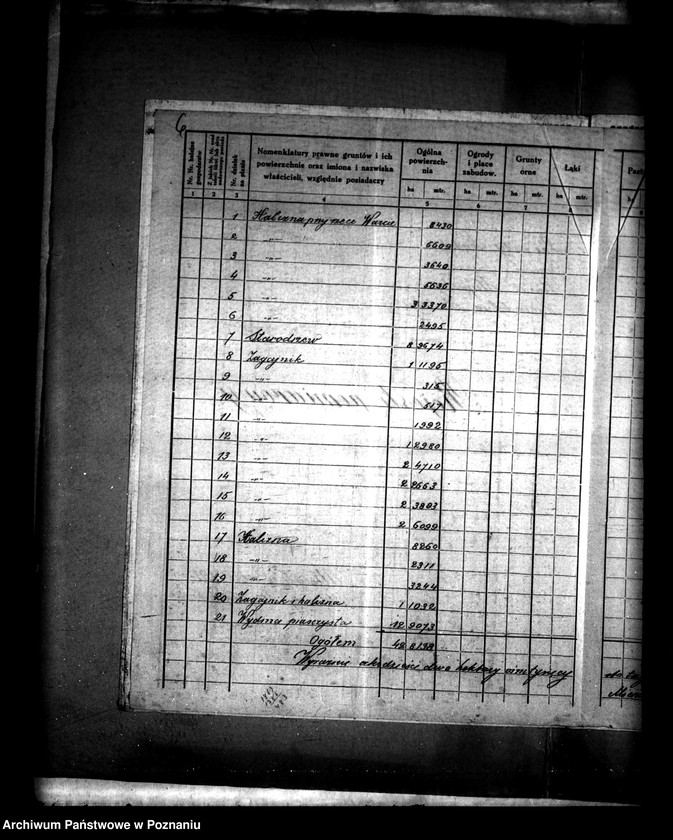 6
Nomenklatury prawne gruntów i ich powierzchnie oraz imiona i nazwiska właścicieli, względnie posiadaczy
Nr. działek na planie
Ogólna powierzchnia
Ogrody i place zabudow.
Grunty orne
Łąki
ha mtr. ha mtr. ha mtr. ha mtr.
1 2 3 4 5 6 7 8
1 Halizna przy rzece Warcie 8430
2 -„- 6609
3 -„- 3640
4 -„- 5636
5 -„- 3 3370
6 -„- 2495
7 Starodrzew 8 9674
8 Zagajnik 1 1195
9 -„- 315
10 517
11 -„- 1992
12 -„- 1 2980
13 -„- 2 4710
14 -„- 2 2663
15 -„- 2 3803
16 -„- 2 6099
17 Halizna 8260
18 -„- 2911
19 -„- 3244
20 Zagajnik i halizna 1 1032
21 Wydma piaszczysta 12 9073
Ogółem 42 8198
dwa hektary
Archiwum Państwowe w Poznaniu